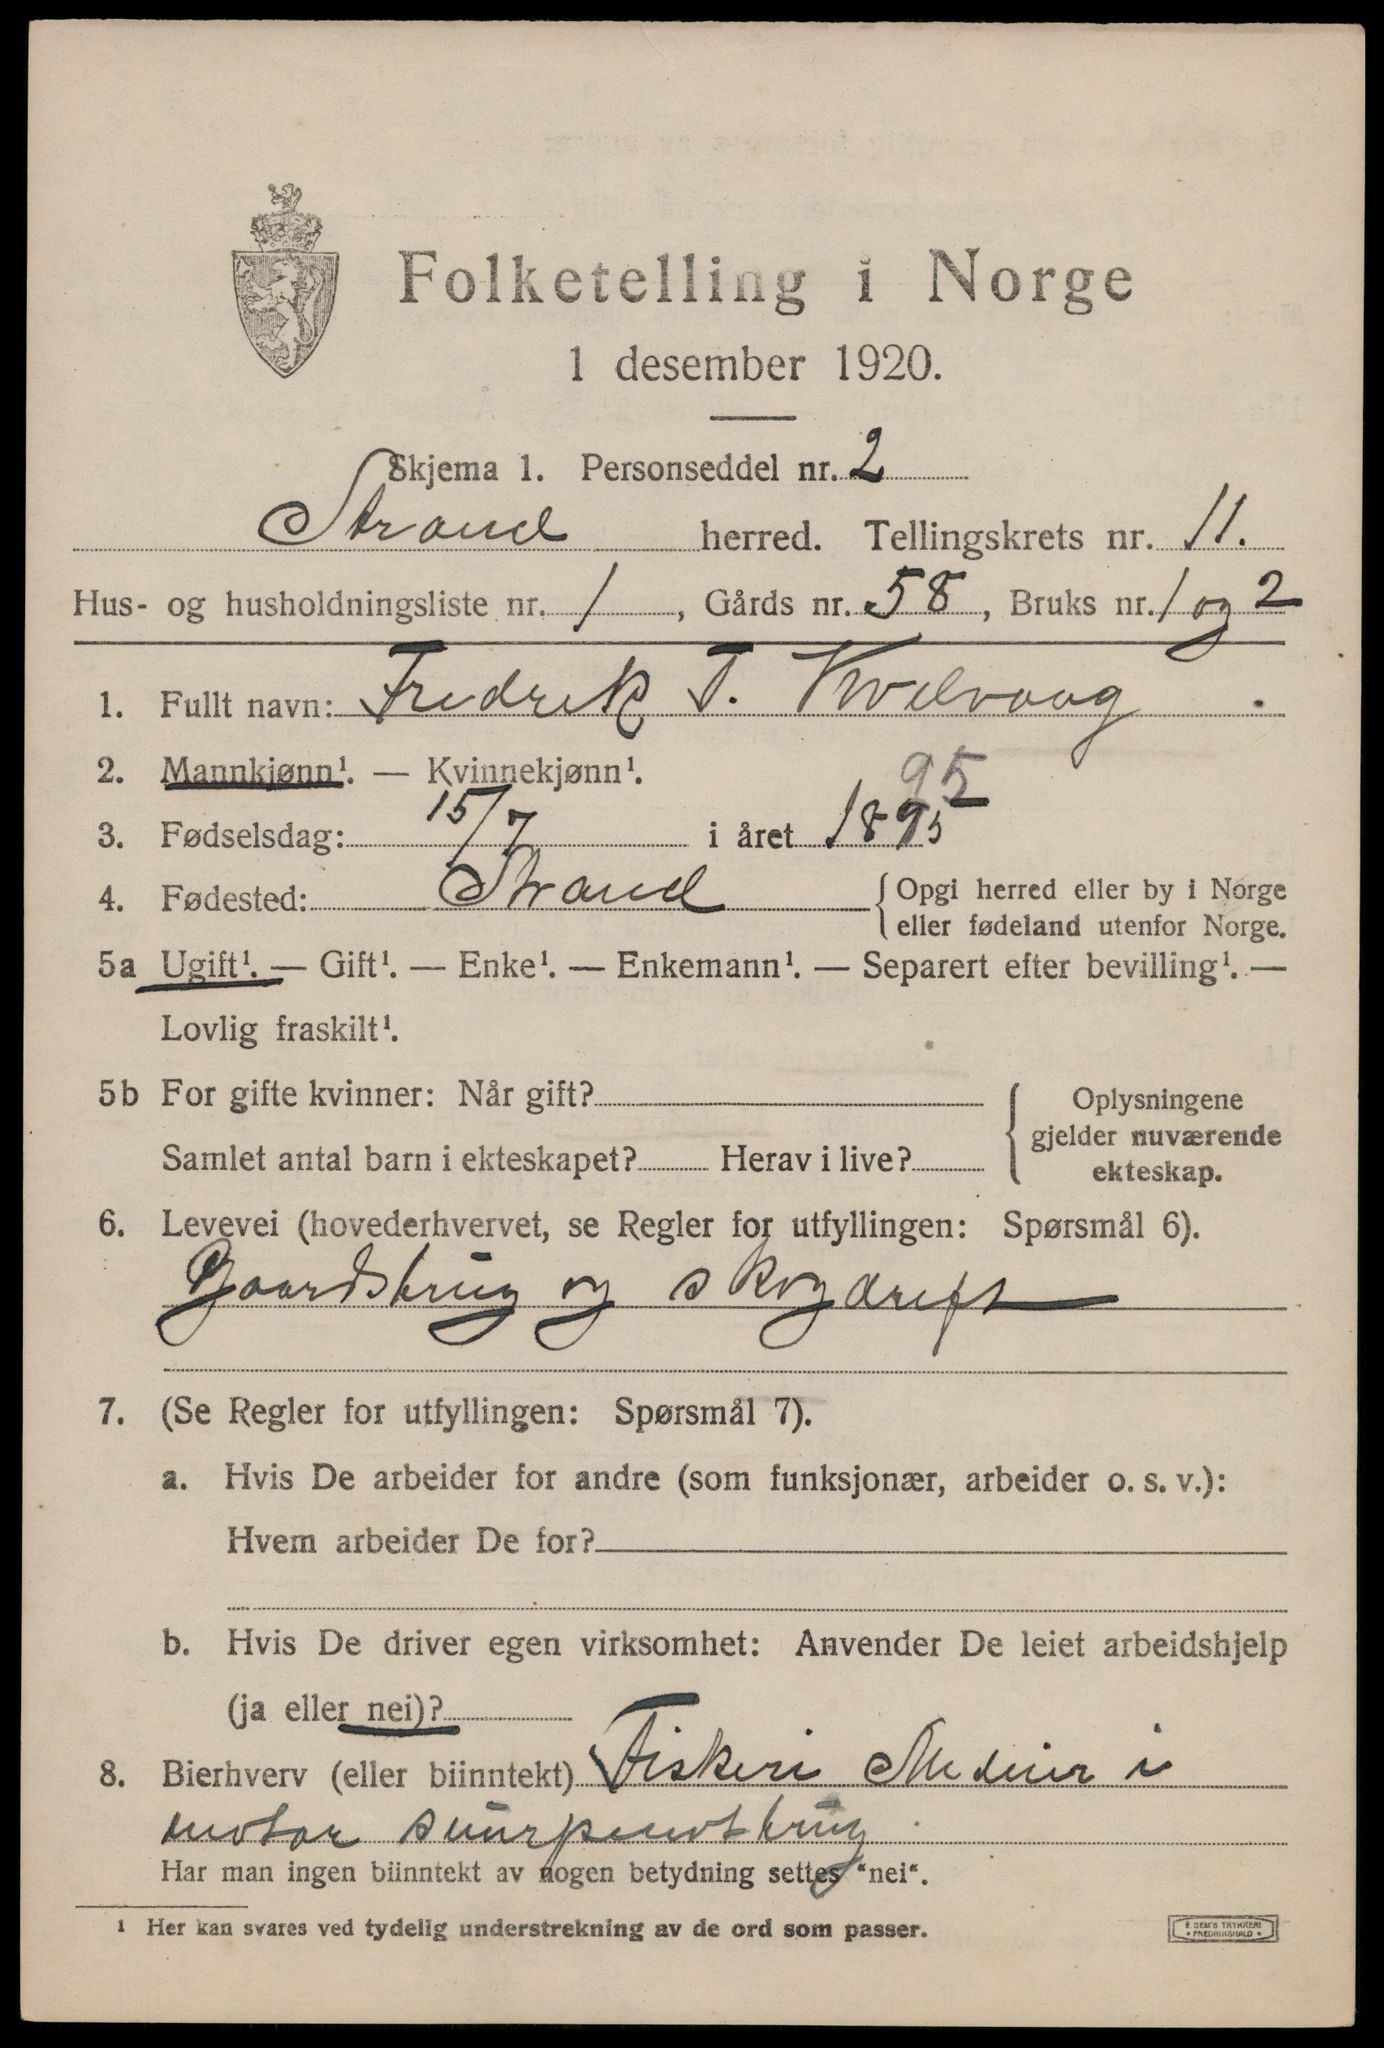 Folketelling i Norge
1 desember 1920.
Skjema 1. Personseddel nr. 2
Strand herred. Tellingskrets nr. 11.
Hus- og husholdningsliste nr. 1, Gårds nr. 58, Bruks nr. 1 og 2
1. Fullt navn: Fredrik T. Kvelvaag.
2. Mannkjønn¹. — Kvinnekjønn¹.
95
3. Fødselsdag: 15/7 i året 1895
4. Fødested: Strand {Opgi herred eller by i Norge
eller fødeland utenfor Norge.
5a Ugift¹. — Gift¹. — Enke¹. — Enkemann¹. — Separert efter bevilling¹. —
Lovlig fraskilt¹.
5b For gifte kvinner: Når gift?
Samlet antal barn i ekteskapet? Herav i live?
Oplysningene
gjelder nuværende
ekteskap.
6. Levevei (hovederhvervet, se Regler for utfyllingen: Spørsmål 6).
Gaardsbrug og skogdrift
7. (Se Regler for utfyllingen: Spørsmål 7).
a. Hvis De arbeider for andre (som funksjonær, arbeider o. s. v.):
Hvem arbeider De for?
b. Hvis De driver egen virksomhet: Anvender De leiet arbeidshjelp
(ja eller nei)?
8. Bierhverv (eller biinntekt) Fiskeri Medeier i
motor snurpenotbrug
Har man ingen biinntekt av nogen betydning settes "nei".
¹ Her kan svares ved tydelig understrekning av de ord som passer.
E SEM'S TRYKKERI
• FREDRIKSHALD •